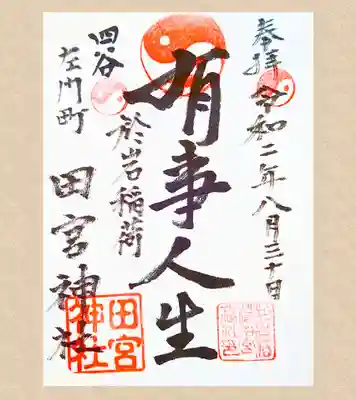 奉拝 令和二年八月三十日
有事人生
於岩稲荷
四谷
左門町
田宮神社
田宮
神社